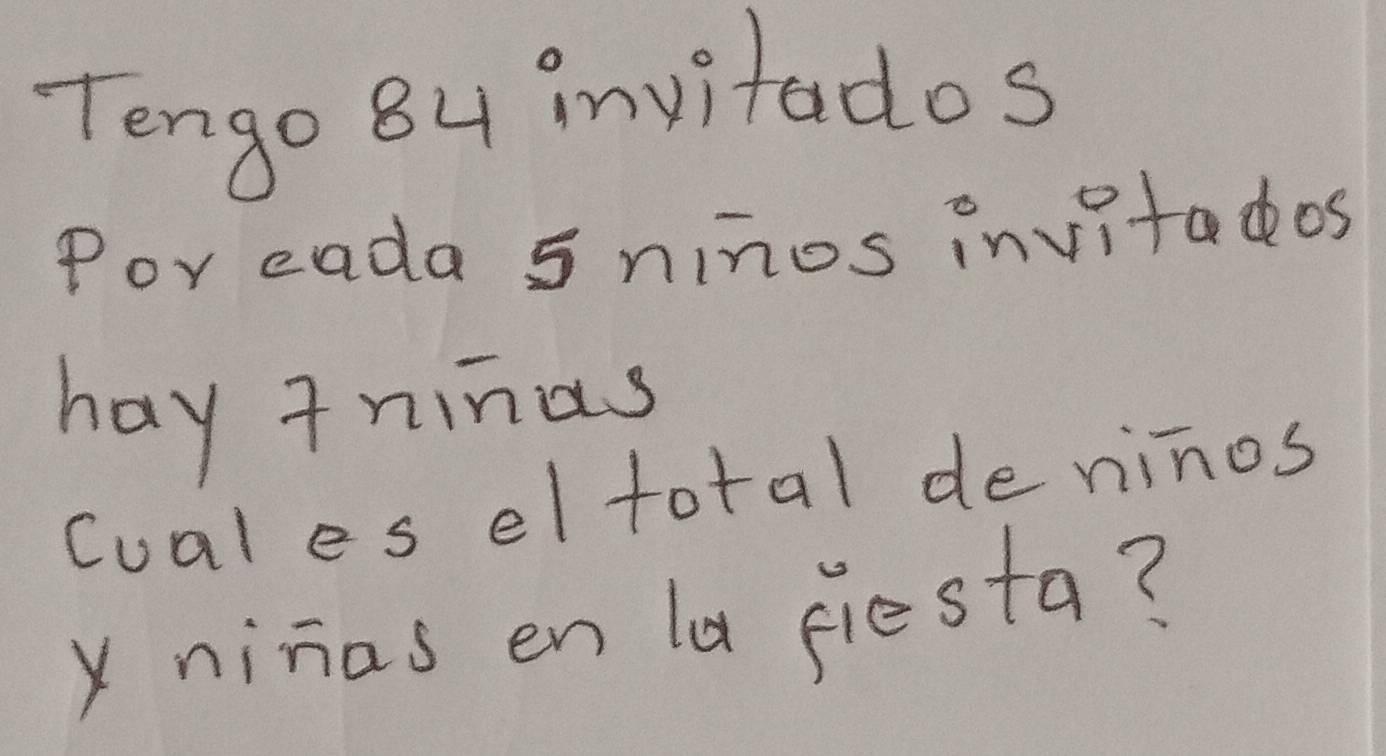 Tengo 84 invitados
Por cada 5 niños invitados
hay 7 niñas
Cual es el total de niños
y niñas en la fiesta?